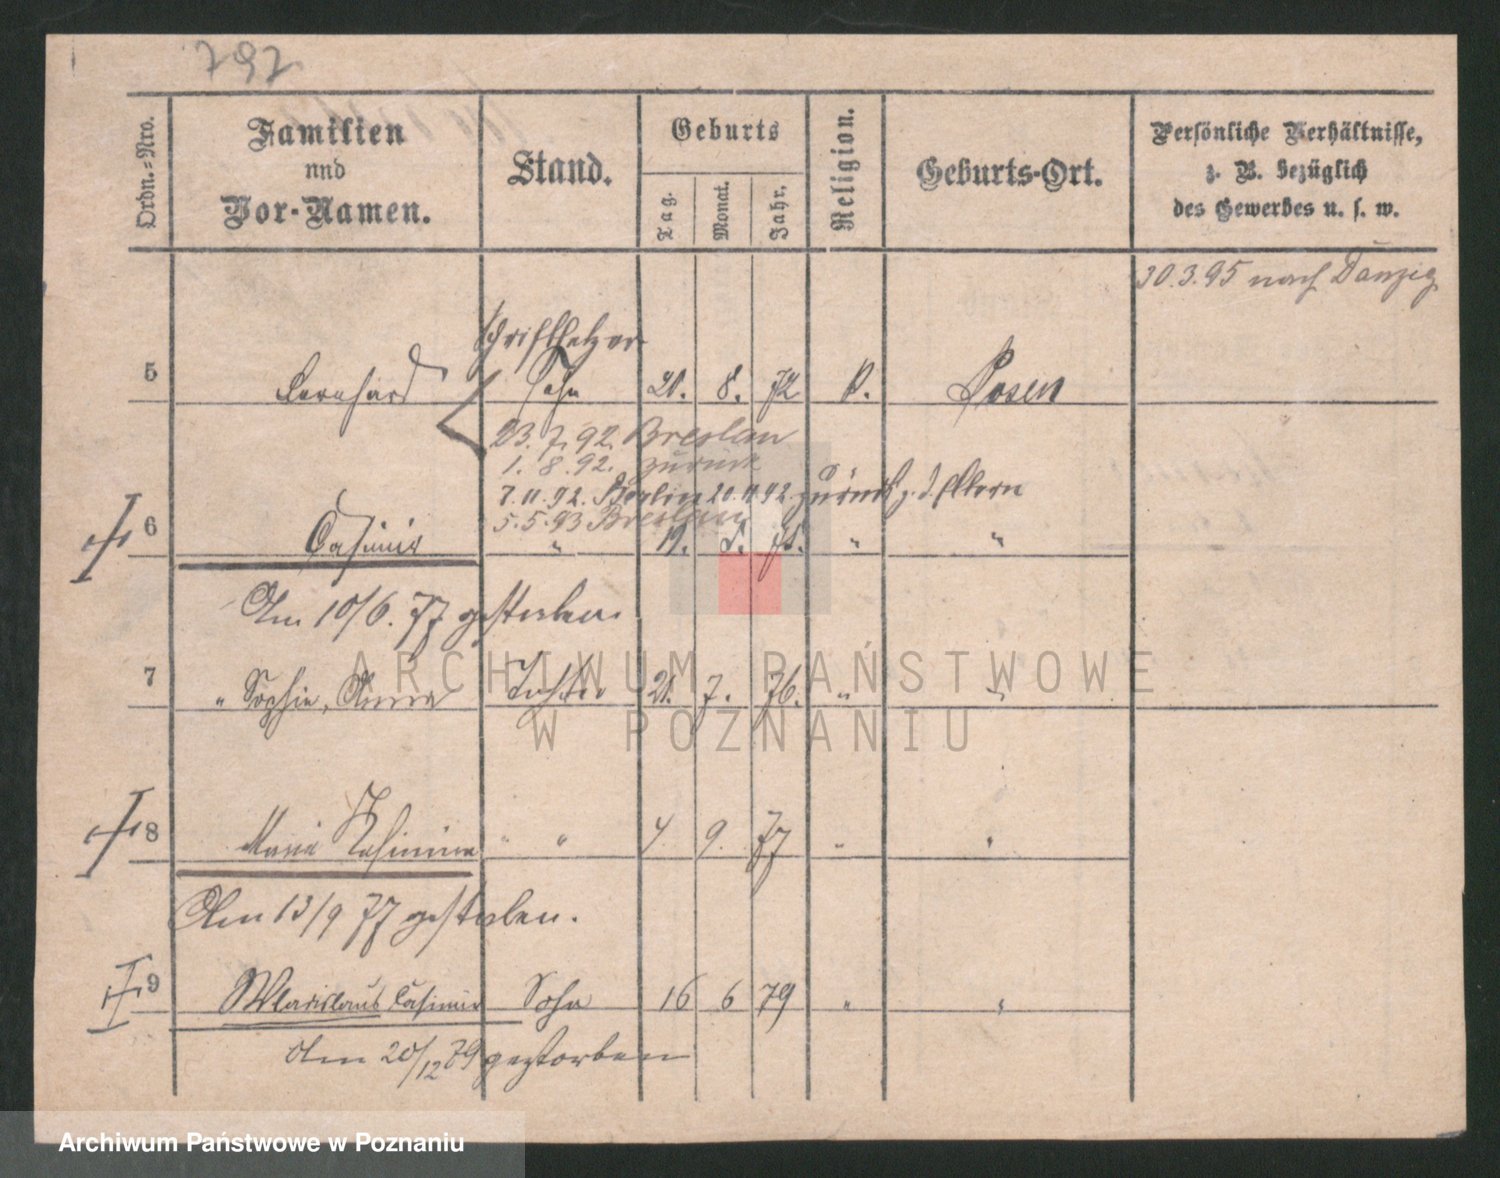 792
Ordn.-Nro.
Familien
und
Vor-Namen.
Stand.
Geburts
Tag.
Monat.
Jahr.
Religion.
Geburts-Ort.
Persönliche Verhältnisse,
z. B. bezüglich
des Gewerbes u. s. w.
30.3.95 nach Danzig
Schriftsetzer
5 Bernhard Sohn 21. 8. 72 k. Posen
23. 7. 92. Breslau
1. 8. 92. zurück
7. 11. 92. Berlin 20. 11. 92 zurück z. d. Eltern
5. 5. 93 Breslau
6 Casimir " 19. " "
Am 10/6. 77 gestorben
7 " Sophie, Anna Tochter 21. 7. 76. " "
8 Maria Kasimira " " 4. 9. 77 " "
Am 13/9 77 gestorben.
9 Wladislaus Casimir Sohn 16 6 79 " "
Am 20/12 79 gestorben
ARCHIWUM PAŃSTWOWE
W POZNANIU
Archiwum Państwowe w Poznaniu